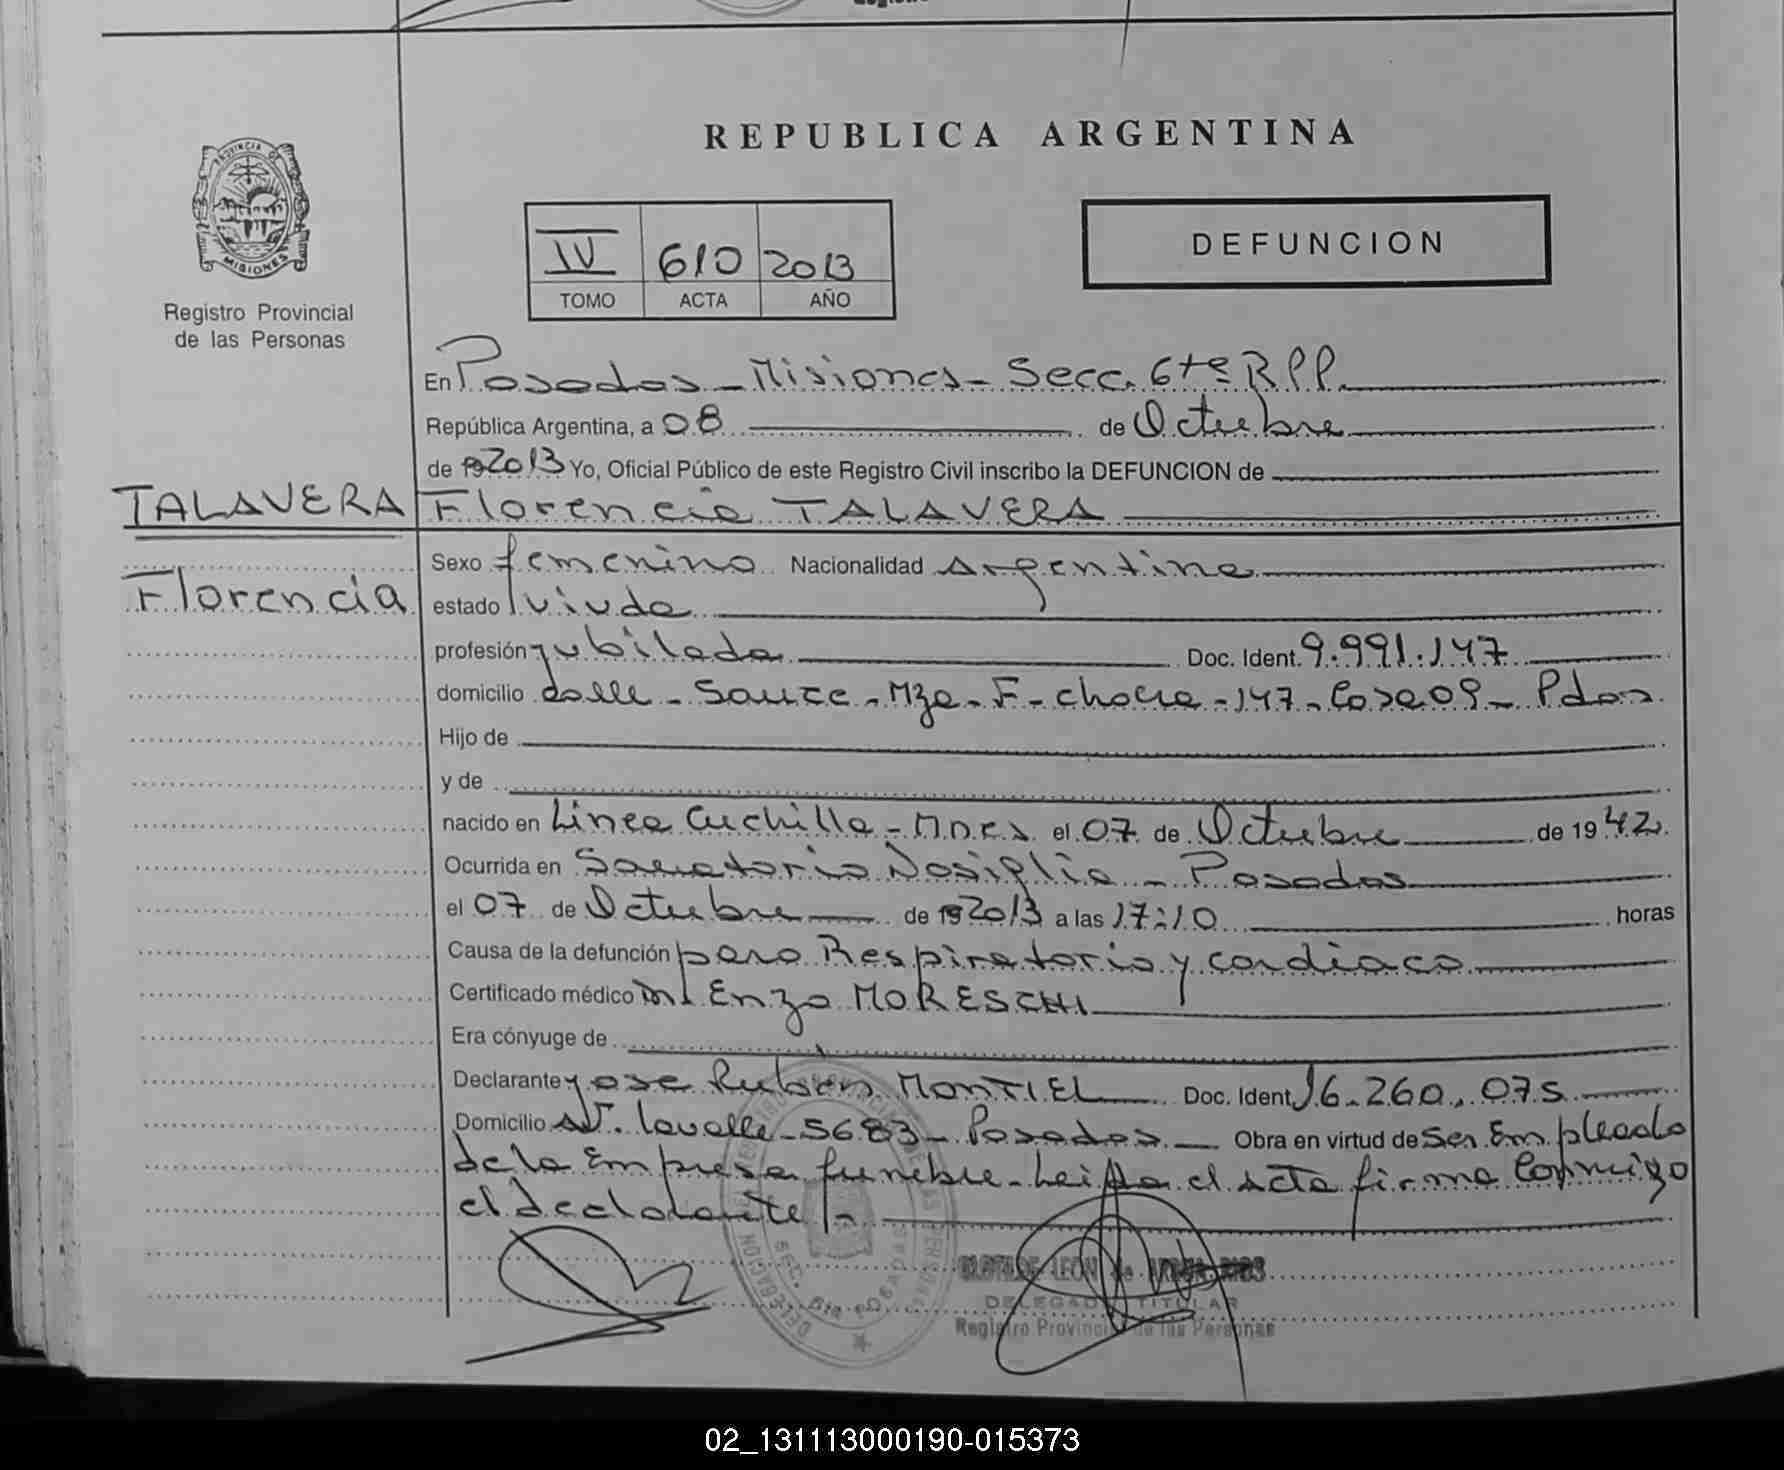 REPUBLICA ARGENTINA
PROVINCIA DE
MISIONES
Registro Provincial
de las Personas
IV 610 2013
TOMO ACTA AÑO
DEFUNCION
En Posadas - Misiones - Secc. 6ta R.P.P.
República Argentina, a 08 de Octubre
de 2013 Yo, Oficial Público de este Registro Civil inscribo la DEFUNCION de
TALAVERA
Florencia
Florencia TALAVERA
Sexo femenino Nacionalidad Argentina
estado viuda
profesión jubilada Doc. Ident. 9.991.147
domicilio calle - Sauce - Mza - F - chacra - 147 - Casa 09 - Pdas.
Hijo de
y de
nacido en Linea Cuchilla - Mnes el 07 de Octubre de 1942.
Ocurrida en Sanatorio Nosiglia - Posadas
el 07 de Octubre de 2013 a las 17:10 horas
Causa de la defunción paro Respiratorio y cardiaco
Certificado médico Enzo MORESCHI
Era cónyuge de
Declarante Jose Rubén MONTIEL Doc. Ident. 16.260.075
Domicilio Av. Lavalle - 5683 - Posadas Obra en virtud de ser Empleado
de la Empresa funebre - Leida el Acta firma Conmigo
el declarante
LEON de RIOS
DELEGADA TITULAR
Registro Provincial de las Personas
02_131113000190-015373